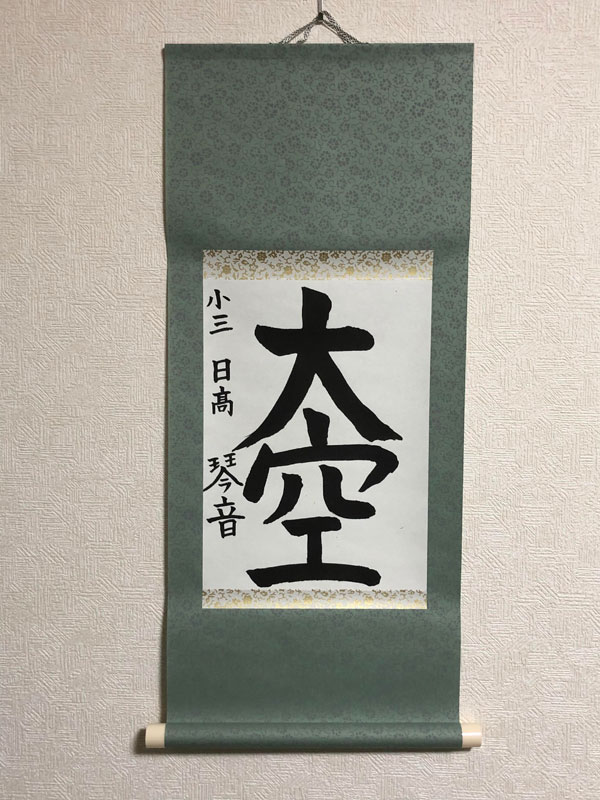 大空
小三 日髙 琴音